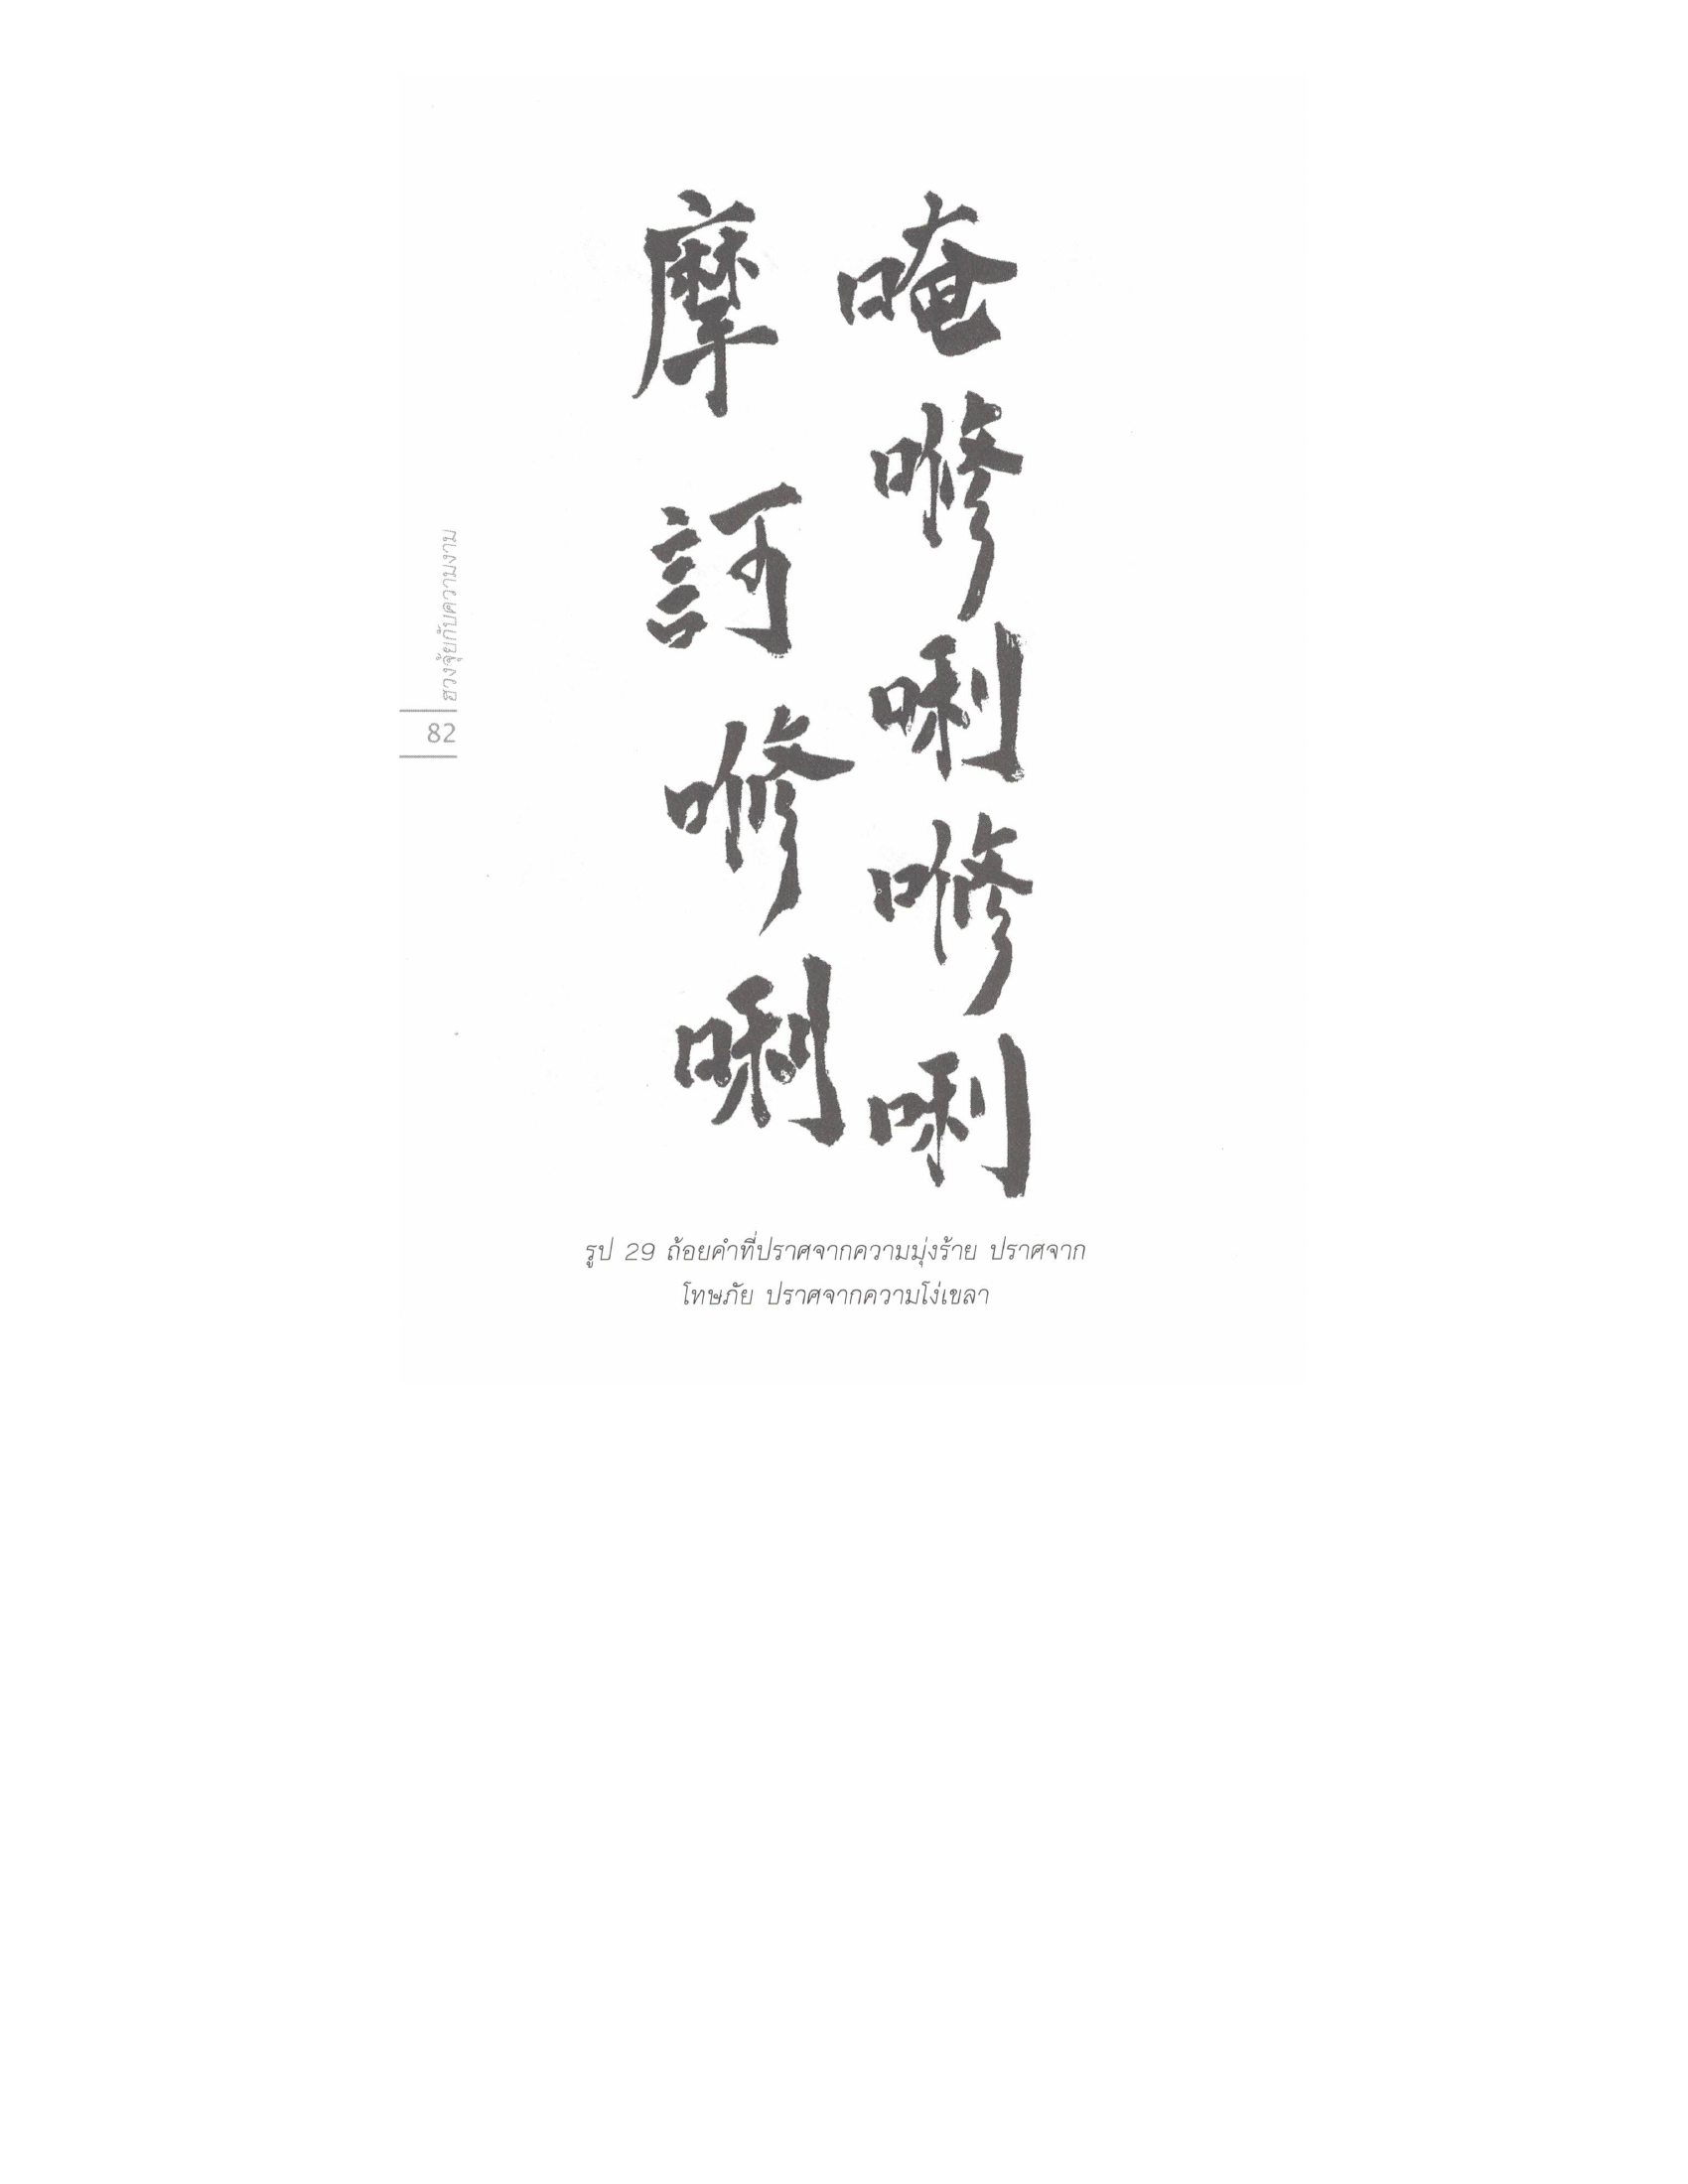 唵㗛唎㗛唎
摩訶㗛唎
รูป 29 ถ้อยคำที่ปราศจากความมุ่งร้าย ปราศจาก
โทษภัย ปราศจากความโง่เขลา
ฮวงจุ้ยกับความงาม
82